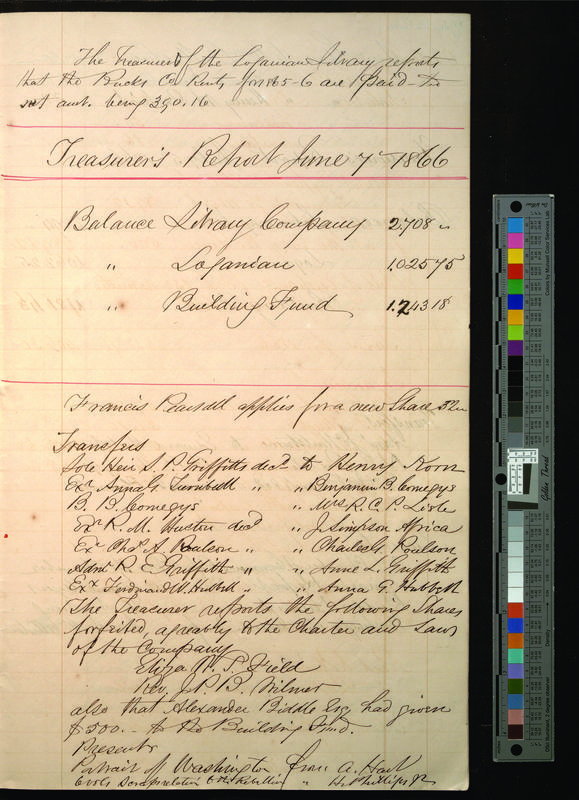 The Treasurer of the Loganian Library reports
that the Bucks Co Rents for 1865-6 are paid - the
net amt. being 390.16
Treasurer's Report June 7th 1866
Balance Library Company 2.708 "
" Loganian 1.025 75
" Building Fund 1.243 18
Francis Pearsall applies for a new Share
Transfers
Sole Heir S. P. Griffitts decd to Henry Korn
Exr Anna G Turnbull " " Benjamin B. Comegys
B. B. Comegys " Mrs R. C. P. Lisle
Exr R. M. Huston decd " J. Simpson Africa
Ex Chas. A Poulson " " Charles A. Poulson
Admr R. E. Griffith " " Anne L. Griffith
Exx Ferdinand W. Hubbell " " Anna G. Hubbell
The Treasurer reports the following Shares
forfeited agreably to the Charter and Laws
of the Company
Eliza W. S. Field
Rev. J. P. B. Wilmer
also that Alexander Biddle Esq had given
$500. - to the Building Fund.
Presents
Portrait of Washington from A. Hart
" H. Phillips Jr